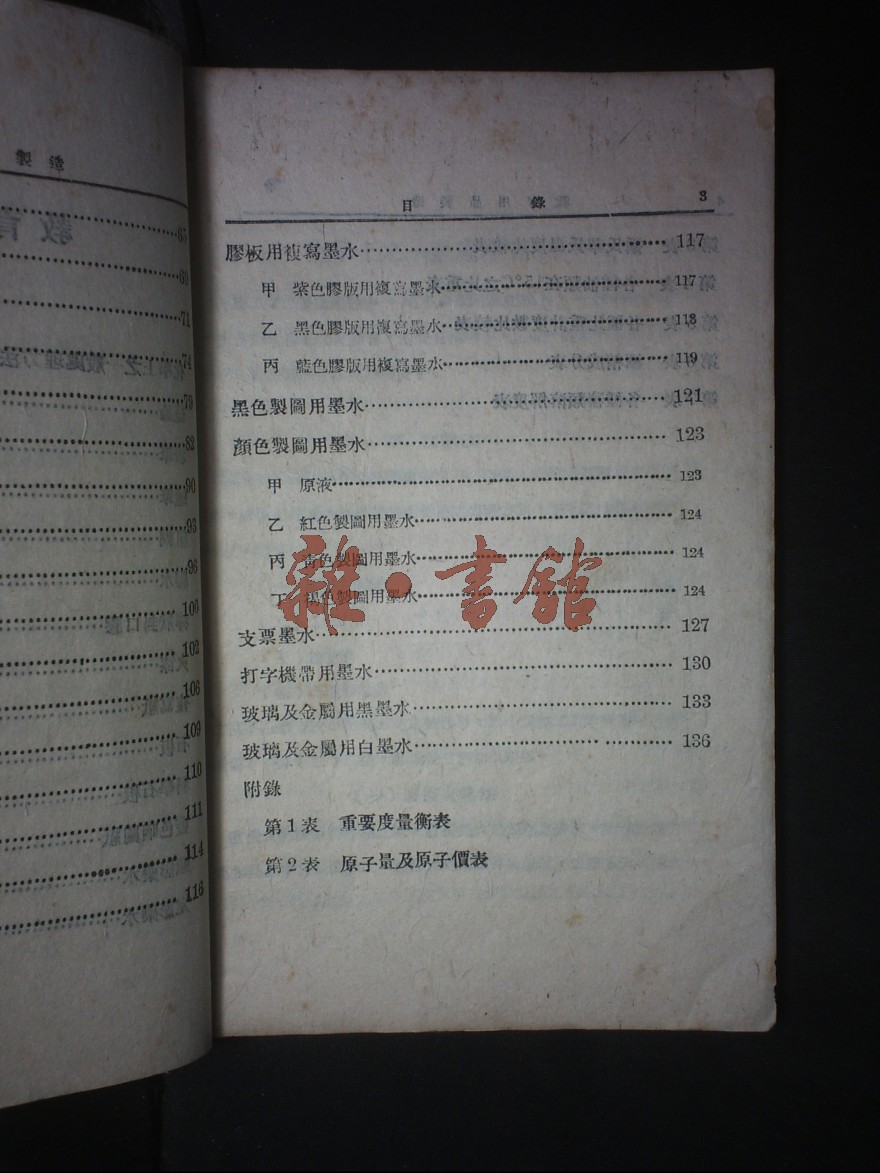 目錄 3
膠板用複寫墨水 117
甲 紫色膠版用複寫墨水 117
乙 黑色膠版用複寫墨水 118
丙 藍色膠版用複寫墨水 119
黑色製圖用墨水 121
顏色製圖用墨水 123
甲 原液 123
乙 紅色製圖用墨水 124
丙 黃色製圖用墨水 124
丁 色製圖用墨水 124
支票墨水 127
打字機帶用墨水 130
玻璃及金屬用黑墨水 133
玻璃及金屬用白墨水 136
附錄
第1表 重要度量衡表
第2表 原子量及原子價表
雜·書館
65
69
71
74
79
82
90
93
96
100
102
106
109
110
111
114
116